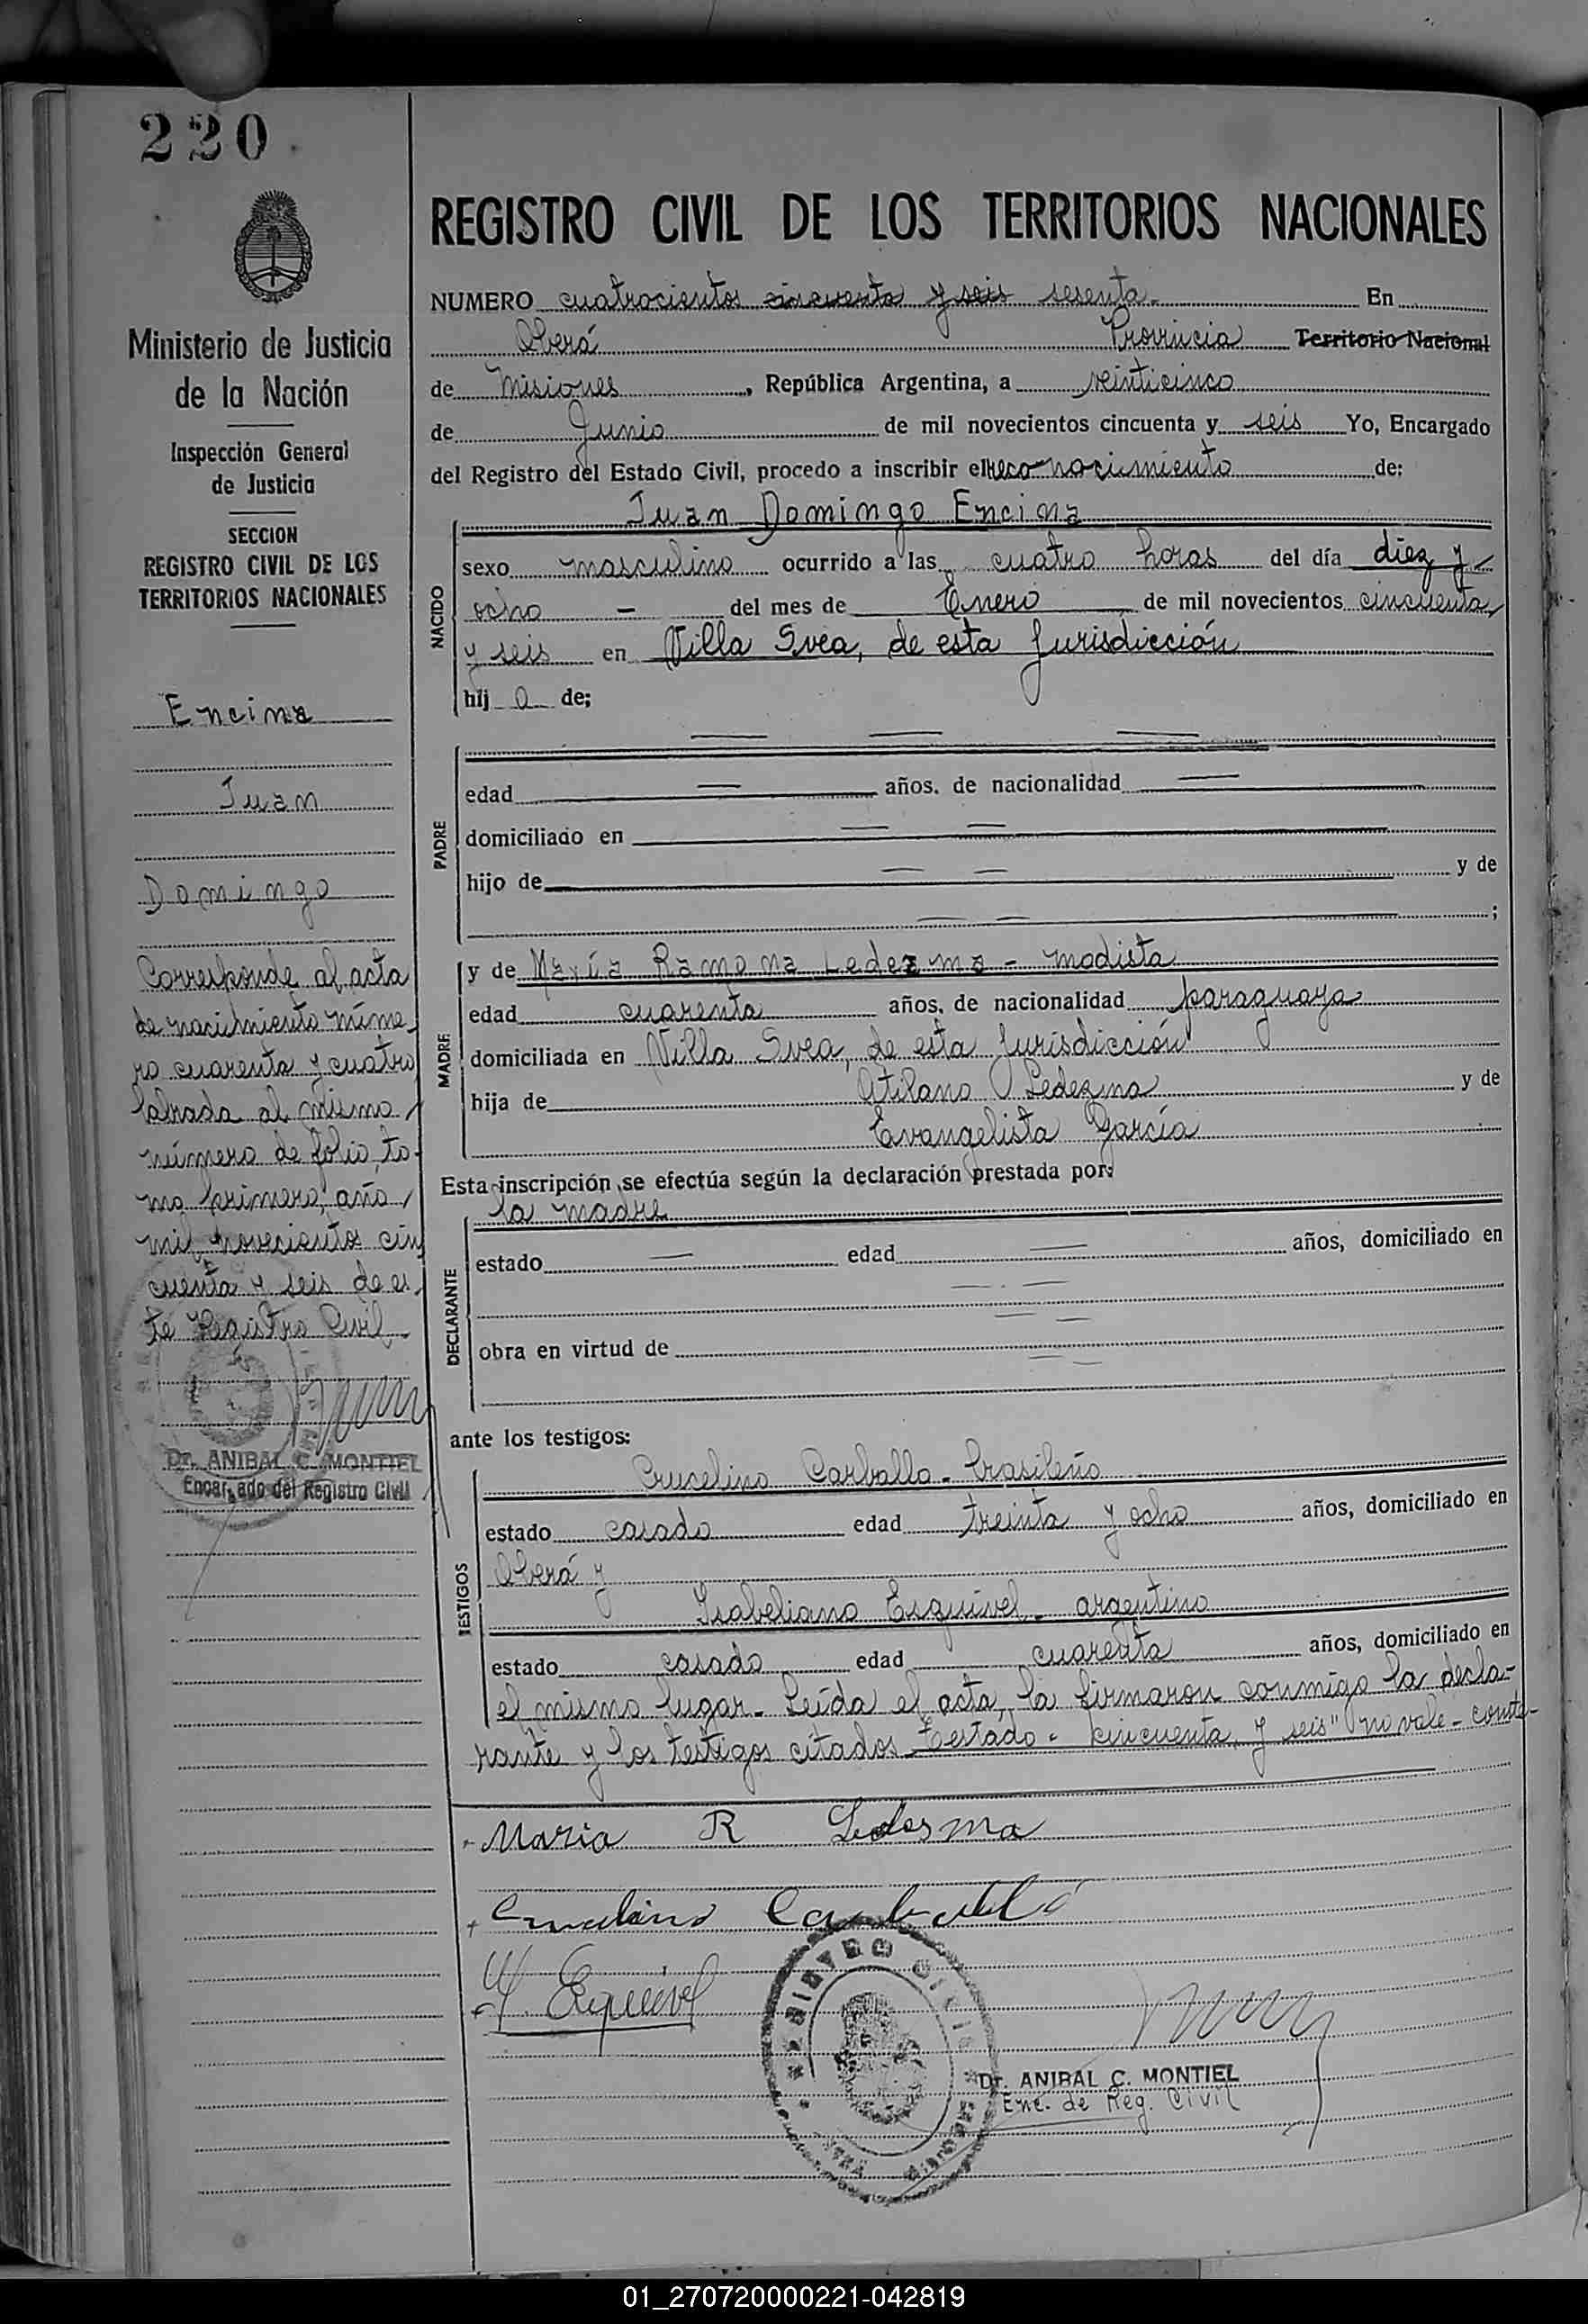 220
Ministerio de Justicia
de la Nación
Inspección General
de Justicia
SECCION
REGISTRO CIVIL DE LOS
TERRITORIOS NACIONALES
Encina
Juan
Domingo
Corresponde al acta
de nacimiento núme-
ro cuarenta y cuatro
labrada al mismo
número de folio, to-
mo primero, año
mil novecientos cin
cuenta y seis de es
te Registro Civil
Dr. ANIBAL C. MONTIEL
Encargado del Registro Civil
REGISTRO CIVIL DE LOS TERRITORIOS NACIONALES
NUMERO cuatrocientos cincuenta y seis sesenta En
Oberá Provincia Territorio Nacional
de Misiones, República Argentina, a veinticinco
de Junio de mil novecientos cincuenta y seis Yo, Encargado
del Registro del Estado Civil, procedo a inscribir el reconocimiento de:
NACIDO
Juan Domingo Encina
sexo masculino ocurrido a las cuatro horas del día diez y
ocho - del mes de Enero de mil novecientos cincuenta
y seis en Villa Svea, de esta Jurisdicción
hij o de;
PADRE
edad — años, de nacionalidad —
domiciliado en — —
hijo de — — y de
— — ;
MADRE
y de María Ramona Ledezma - modista
edad cuarenta años, de nacionalidad paraguaya
domiciliada en Villa Svea, de esta Jurisdicción
hija de Atilano Ledezma y de
Evangelista García
Esta inscripción se efectúa según la declaración prestada por:
DECLARANTE
la madre
estado — edad — años, domiciliado en
obra en virtud de
ante los testigos:
TESTIGOS
Crucelino Carballo - brasileño
estado casado edad treinta y ocho años, domiciliado en
Oberá y
Isabeliano Esquivel - argentino
estado casado edad cuarenta años, domiciliado en
el mismo lugar. Leída el acta, la firmaron conmigo la decla-
rante y los testigos citados Testado - cincuenta y seis" no vale - conste-
Maria R Ledesma
Y. Esquivel
REGISTRO CIVIL
Dr. ANIBAL C. MONTIEL
Enc. de Reg. Civil
01_270720000221-042819